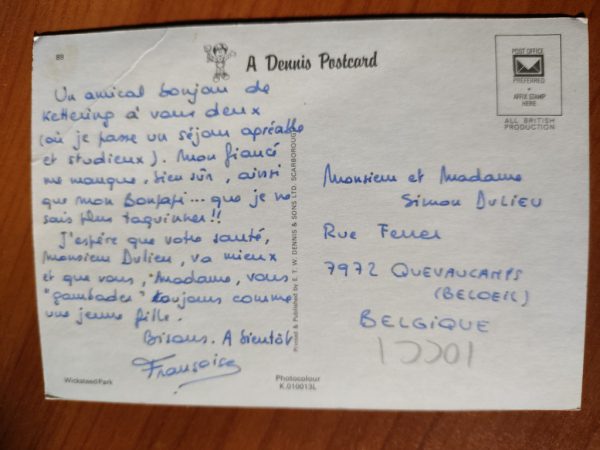 88
A Dennis Postcard
POST OFFICE
PREFERRED
AFFIX STAMP
HERE
ALL BRITISH
PRODUCTION
Un amical bonjour de
Kettering à vous deux
(où je passe un séjour agréable
et studieux). Mon fiancé
me manque, bien sûr, ainsi
que mon Bonpapi... que je ne
sais plus taquinner!!
J'espère que votre santé,
Monsieur Dulieu, va mieux
et que vous, Madame, vous
"gambadez" toujours comme
une jeune fille.
Bisous. A bientôt
Françoise
Printed & Published by E. T. W. DENNIS & SONS LTD. SCARBOROUGH
Monsieur et Madame
Simon DULIEU
Rue Ferrer
7972 QUEVAUCAMPS
(BELOEIL)
BELGIQUE
Wicksteed Park
Photocolour
K.010013L